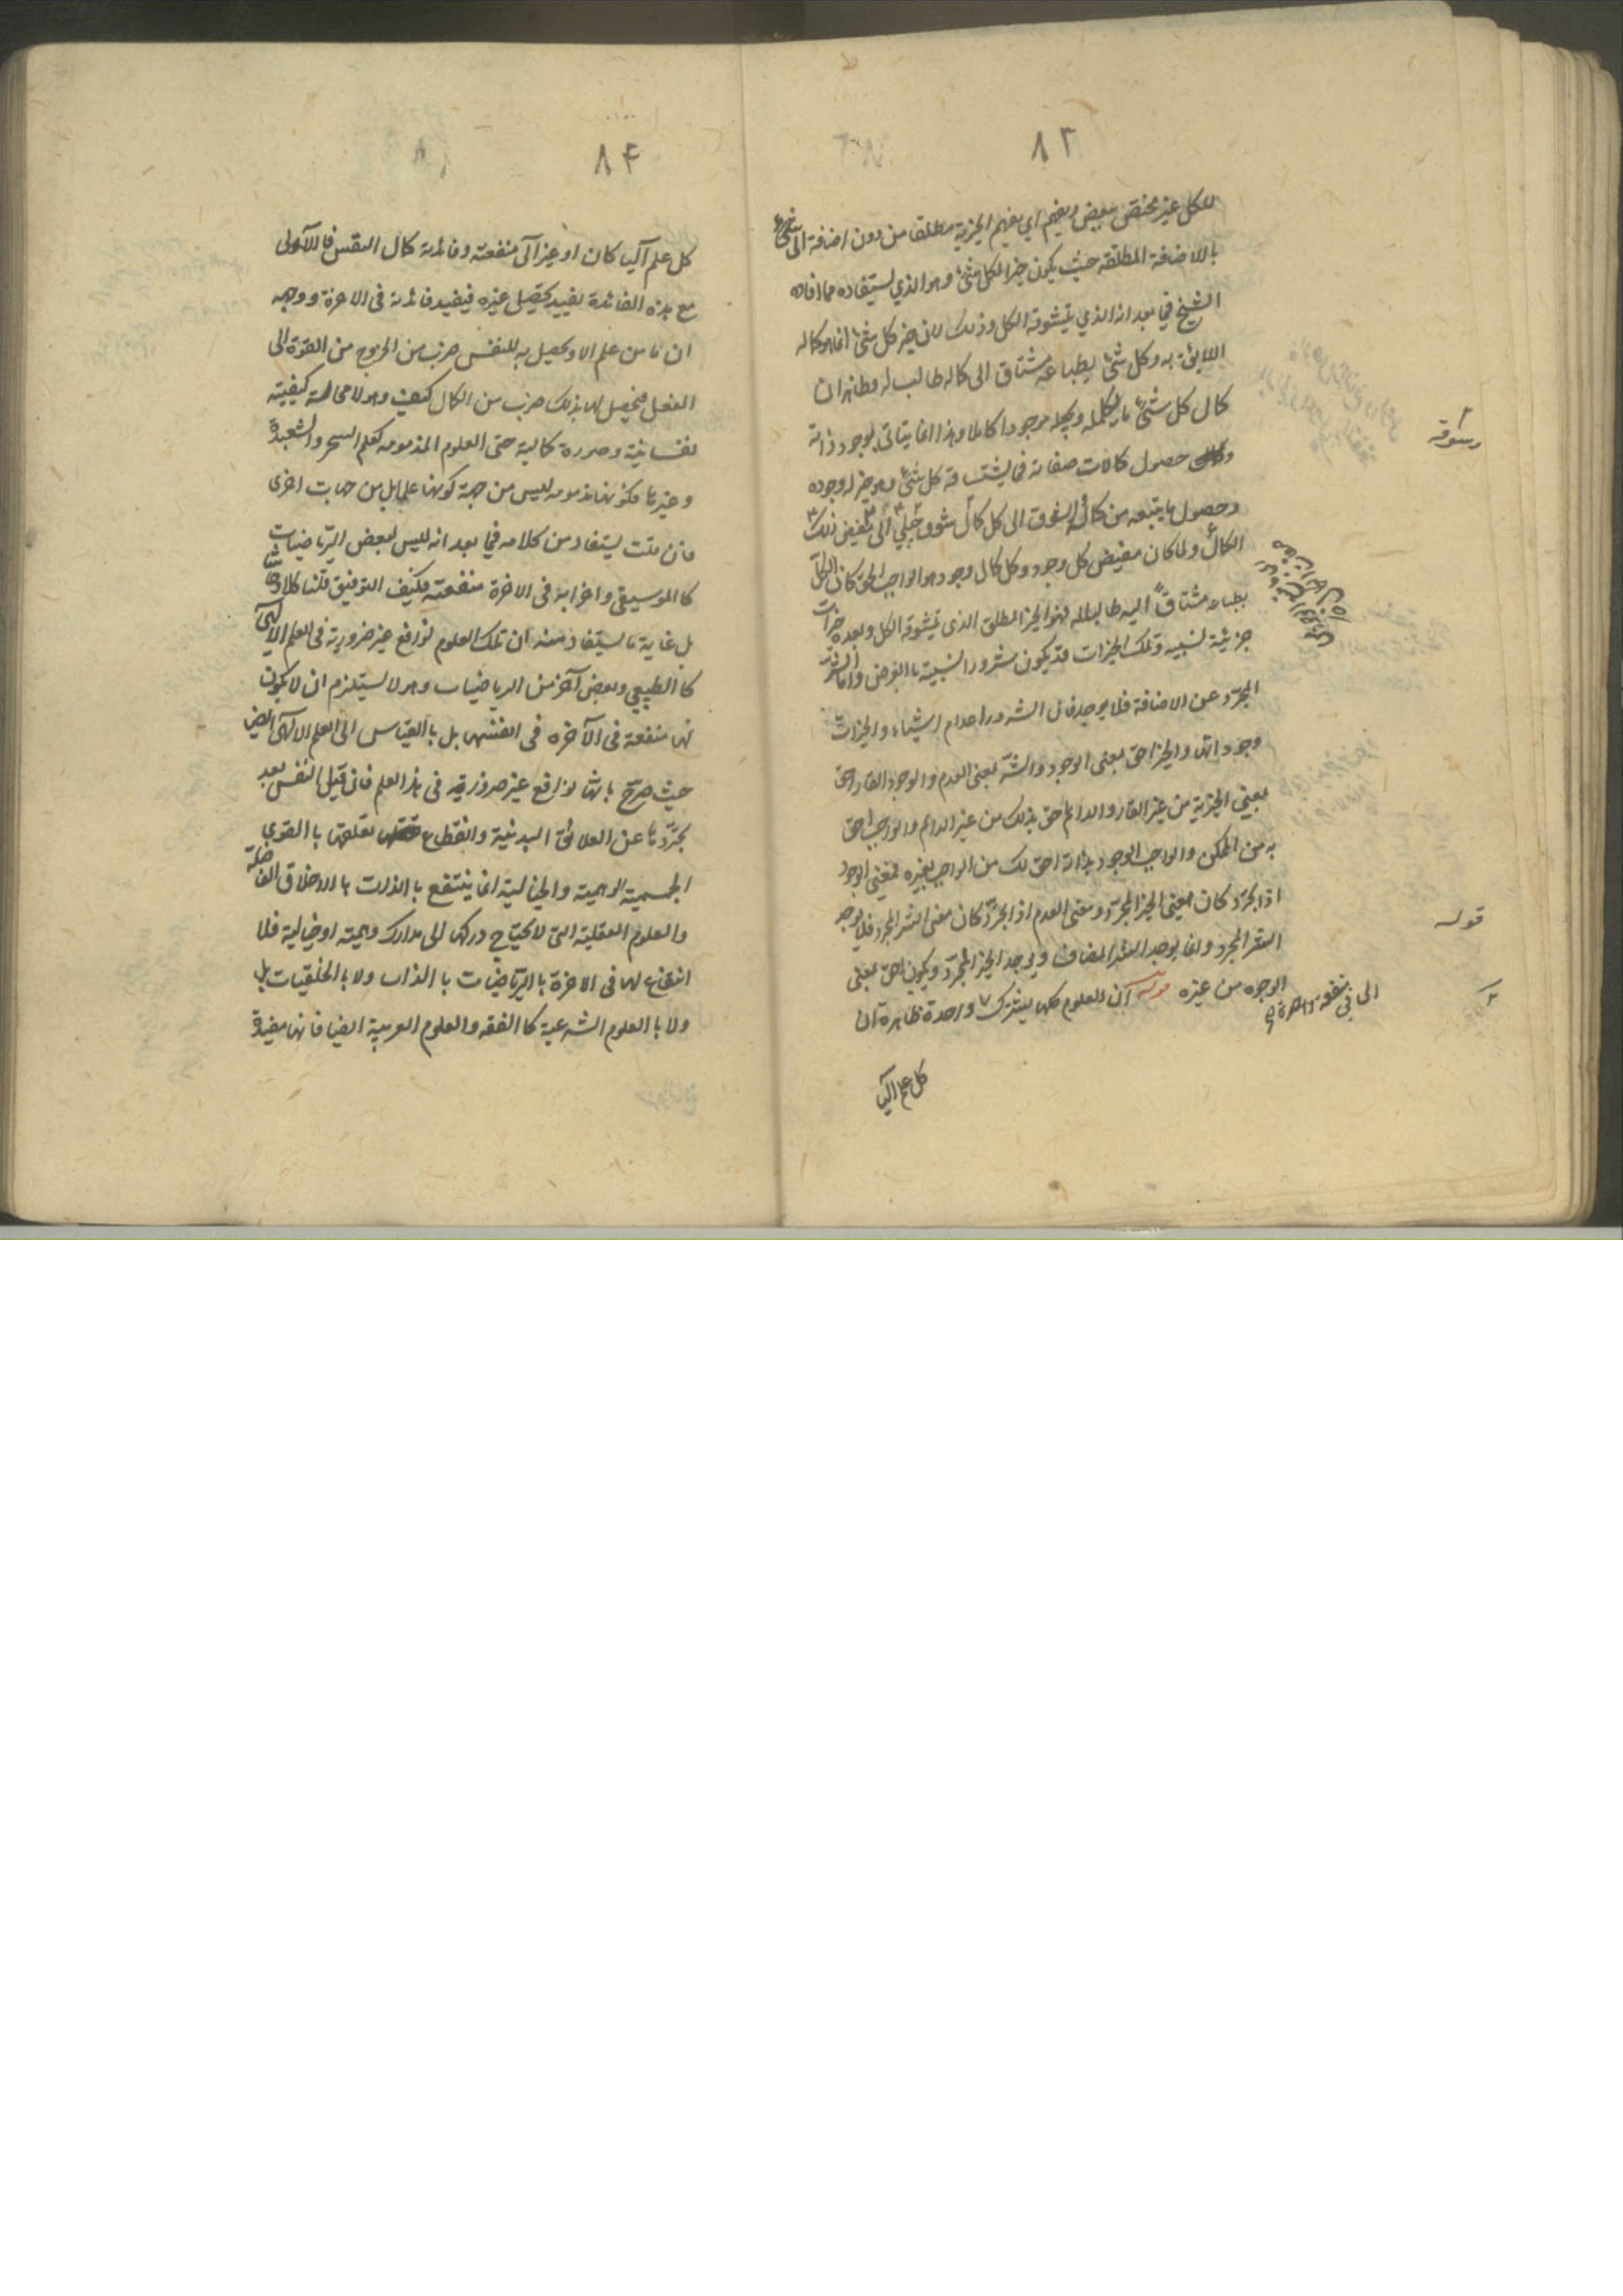 ٨٣
للكل غير مختص ببعض وبعضهم اي يفهم الخيرية مطلقا من دون اضافة الى شيء
بالاضافة المطلقة حيث يكون خيرا لكل شيء وهو الذي يستفاد مما افاده
الشيخ فيما بعد انه الذي يتشوقه الكل وذلك لان خير كل شيء انما هو كماله
اللايق به وكل شيء بطباعه مشتاق الى كماله طالب له وظاهر ان
كمال كل شيء ما يكمله ويجعله موجودا كاملا وهذا انما يتاتى بوجود ذاته
حصول كمالات صفاته فما يتشوقه كل شيء وهو خير له وجوده
وحصول ما يتبعه من كماله الشوق الى كل كمال شوق جبلي الى مفيض ذلك
الكمال ولما كان مفيض كل وجود وكل كمال وجود هو الواجب الحق كان الكل
بطباعه مشتاقاً اليه طالبا له فهو الخير المطلق الذي يتشوقه الكل وبعده خيرات
جزئية نسبية وتلك الخيرات قد يكون شرور النسبية بالعرض واما الشر
المجرد عن الاضافة فلا يوجد فان الشرور اعدام اشياء والخيرات
وجوداتها والخير احق بمعنى الوجود والشر بمعنى العدم والوجود القار احق
بمعنى الخيرية من غير القار والدائم احق بذلك من غير الدائم والواجب احق
به من الممكن والواجب الوجود بذاته احق لك من الواجب بغيره فمعنى الوجود
اذا تجرد كان معنى الخير المجرد ومعنى العدم اذا تجرد كان معنى الشر المجرد فلا يوجد
الشر المجرد وانما يوجد الشر المضاف ويوجد الخير المجرد ويكون احق بمعنى
الوجود من غيره قوله ان العلوم كلها يشترك في منفعة واحدة ظاهرة لان
كل علم آليا
قوله
٨٤
كل علم آليا كان او غير آلى منفعته وفائدته كمال النفس فالآلى
مع هذه الفائدة يفيد تحصيل غيره فيفيد فائدته في الاخرة ووجهه
ان ما من علم الا ويحصل به للنفس ضرب من الخروج من القوة الى
الفعل فيحصل لها بذلك ضرب من الكمال كيف وهو لا محالة كيفية
نفسانية وصورة كمالية حتى العلوم المذمومة كعلم السحر والشعبدة
وغيرها فكونها مذمومة ليس من جهة كونها علما بل من جهات اخرى
فان قلت يستفاد من كلامه فيما بعد انه ليس لبعض الرياضيات
كالموسيقى واخواته في الاخرة منفعة فكيف التوفيق قلنا كلا وحاشا
بل غاية ما يستفاد منه ان تلك العلوم نوافع غير ضرورية في العلم الالهى
كالطبيعي وبعض آخر من الرياضيات وهو لا يستلزم ان لا يكون
لها منفعة في الآخرة في انفسها بل بالقياس الى العلم الالهى ايضا
حيث صرح بانها نوافع غير ضرورية في هذا العلم فان قيل النفس بعد
تجردها عن العلائق البدنية وانقطاع تعلقها بالقوى
الجسمية الوهمية والخيالية انما ينتفع بالذات بالاخلاق الفاضلة
والعلوم العقلية التي لا يحتاج دركها الى مدارك وهمية او خيالية فلا
انتفاع لها في الاخرة بالرياضيات بالذات ولا بالخلقيات بل
ولا بالعلوم الشرعية كالفقه والعلوم العربية ايضا فانها مفيدة